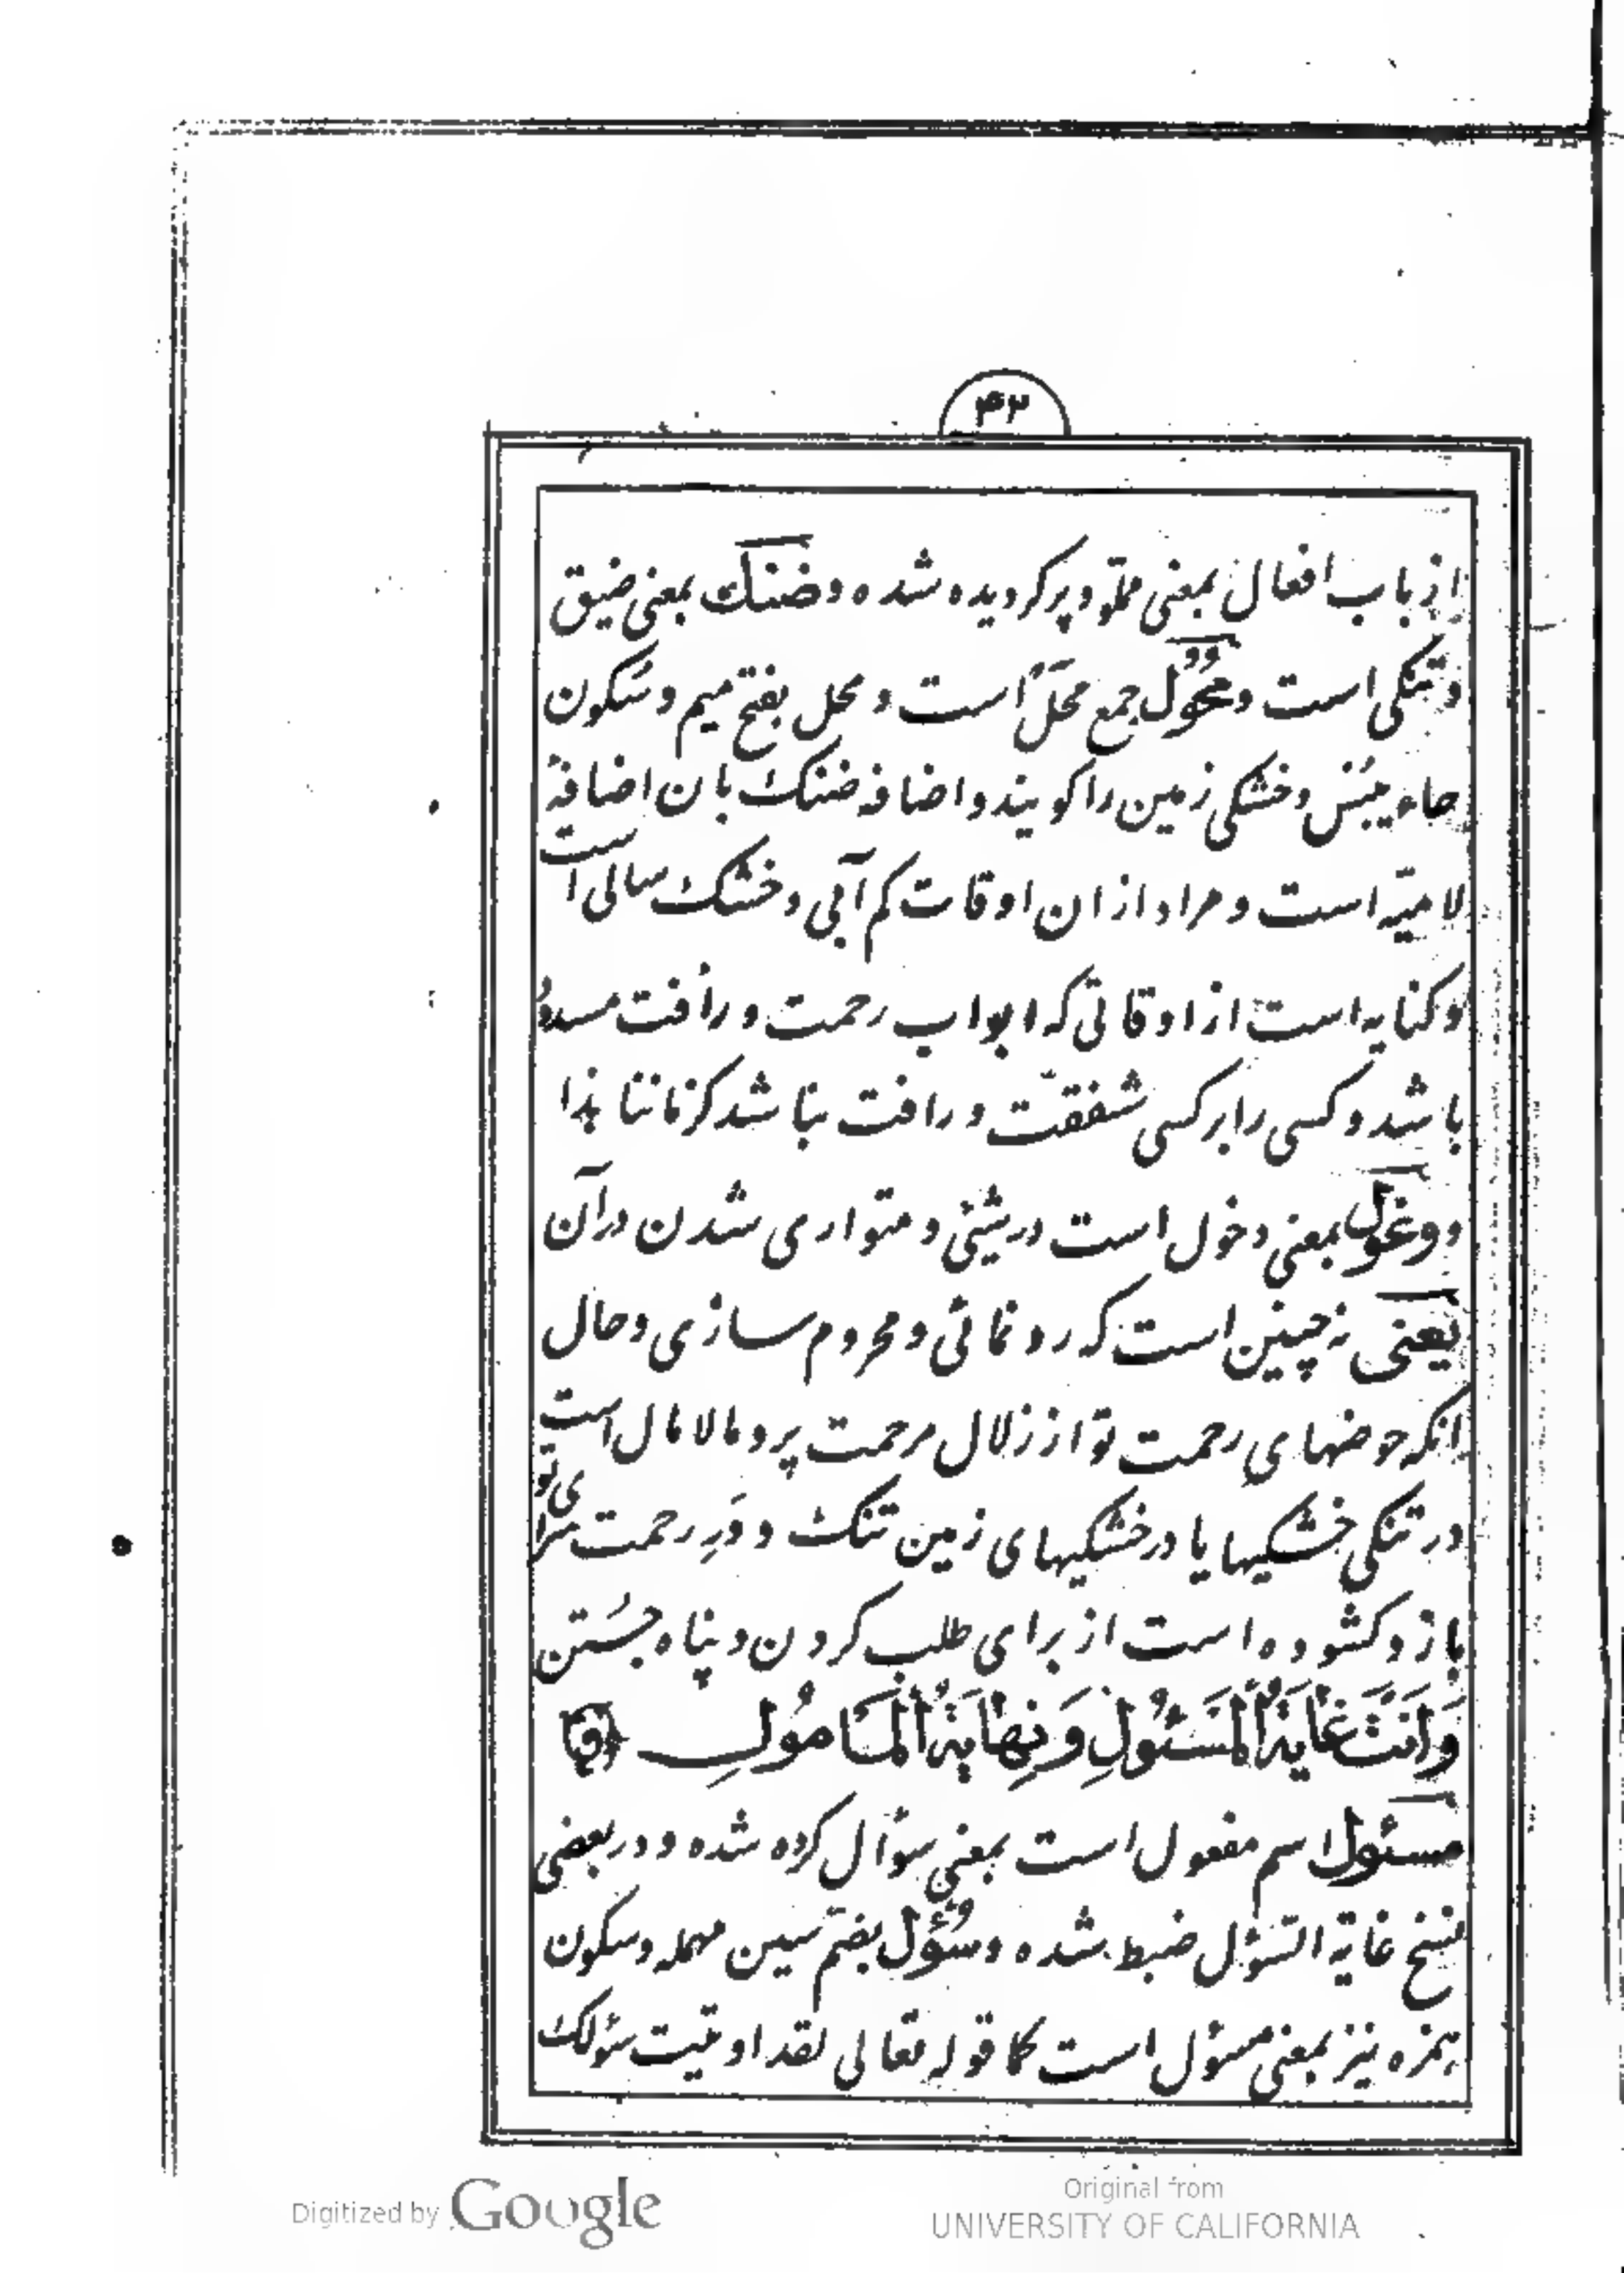 ۴۳
از باب افعال بمعنی مملوّ و پر کردیده شده و ضنك بمعنی ضیق
و تنکی است و مُحُوُل جمع مَحْل است و محل بفتح میم و سکون
حاء یبُس و خشکی زمین را کویند و اضافه ضنك بان اضافهٔ
لامیّه است و مراد از ان اوقات کم آبی و خشك سالی است
و کنایه است از اوقاتی که ابواب رحمت و رأفت مسدود
باشد و کسی را بر کسی شفقت و رافت نباشد کزماننا هذا
و وغول بمعنی دخول است در شیئی و متواری شدن در آن
یعنی نه چنین است که رد نمائی و محروم سازی و حال
انکه حوضهای رحمت تو از زلال مرحمت پر و مالامال است
در تنکی خشکیها یا در خشکیهای زمین تنك و دَرِ رحمت سرای تو
باز و کشوده است از برای طلب کردن و پناه جُستن
وَاَنْتَ غايَةُ الْمَسْئُولِ وَنِهايَةُ الْمَأْمُولِ ﴿ق﴾
مسئول اسم مفعول است بمعنی سؤال کرده شده و در بعضی
نسخ غایة السّؤل ضبط شده و سُؤْل بضمّ سین مهمله و سکون
همزه نیز بمعنی مسؤل است کما قوله تعالی لقد اوتیت سؤلك
Digitized by Google
Original from
UNIVERSITY OF CALIFORNIA